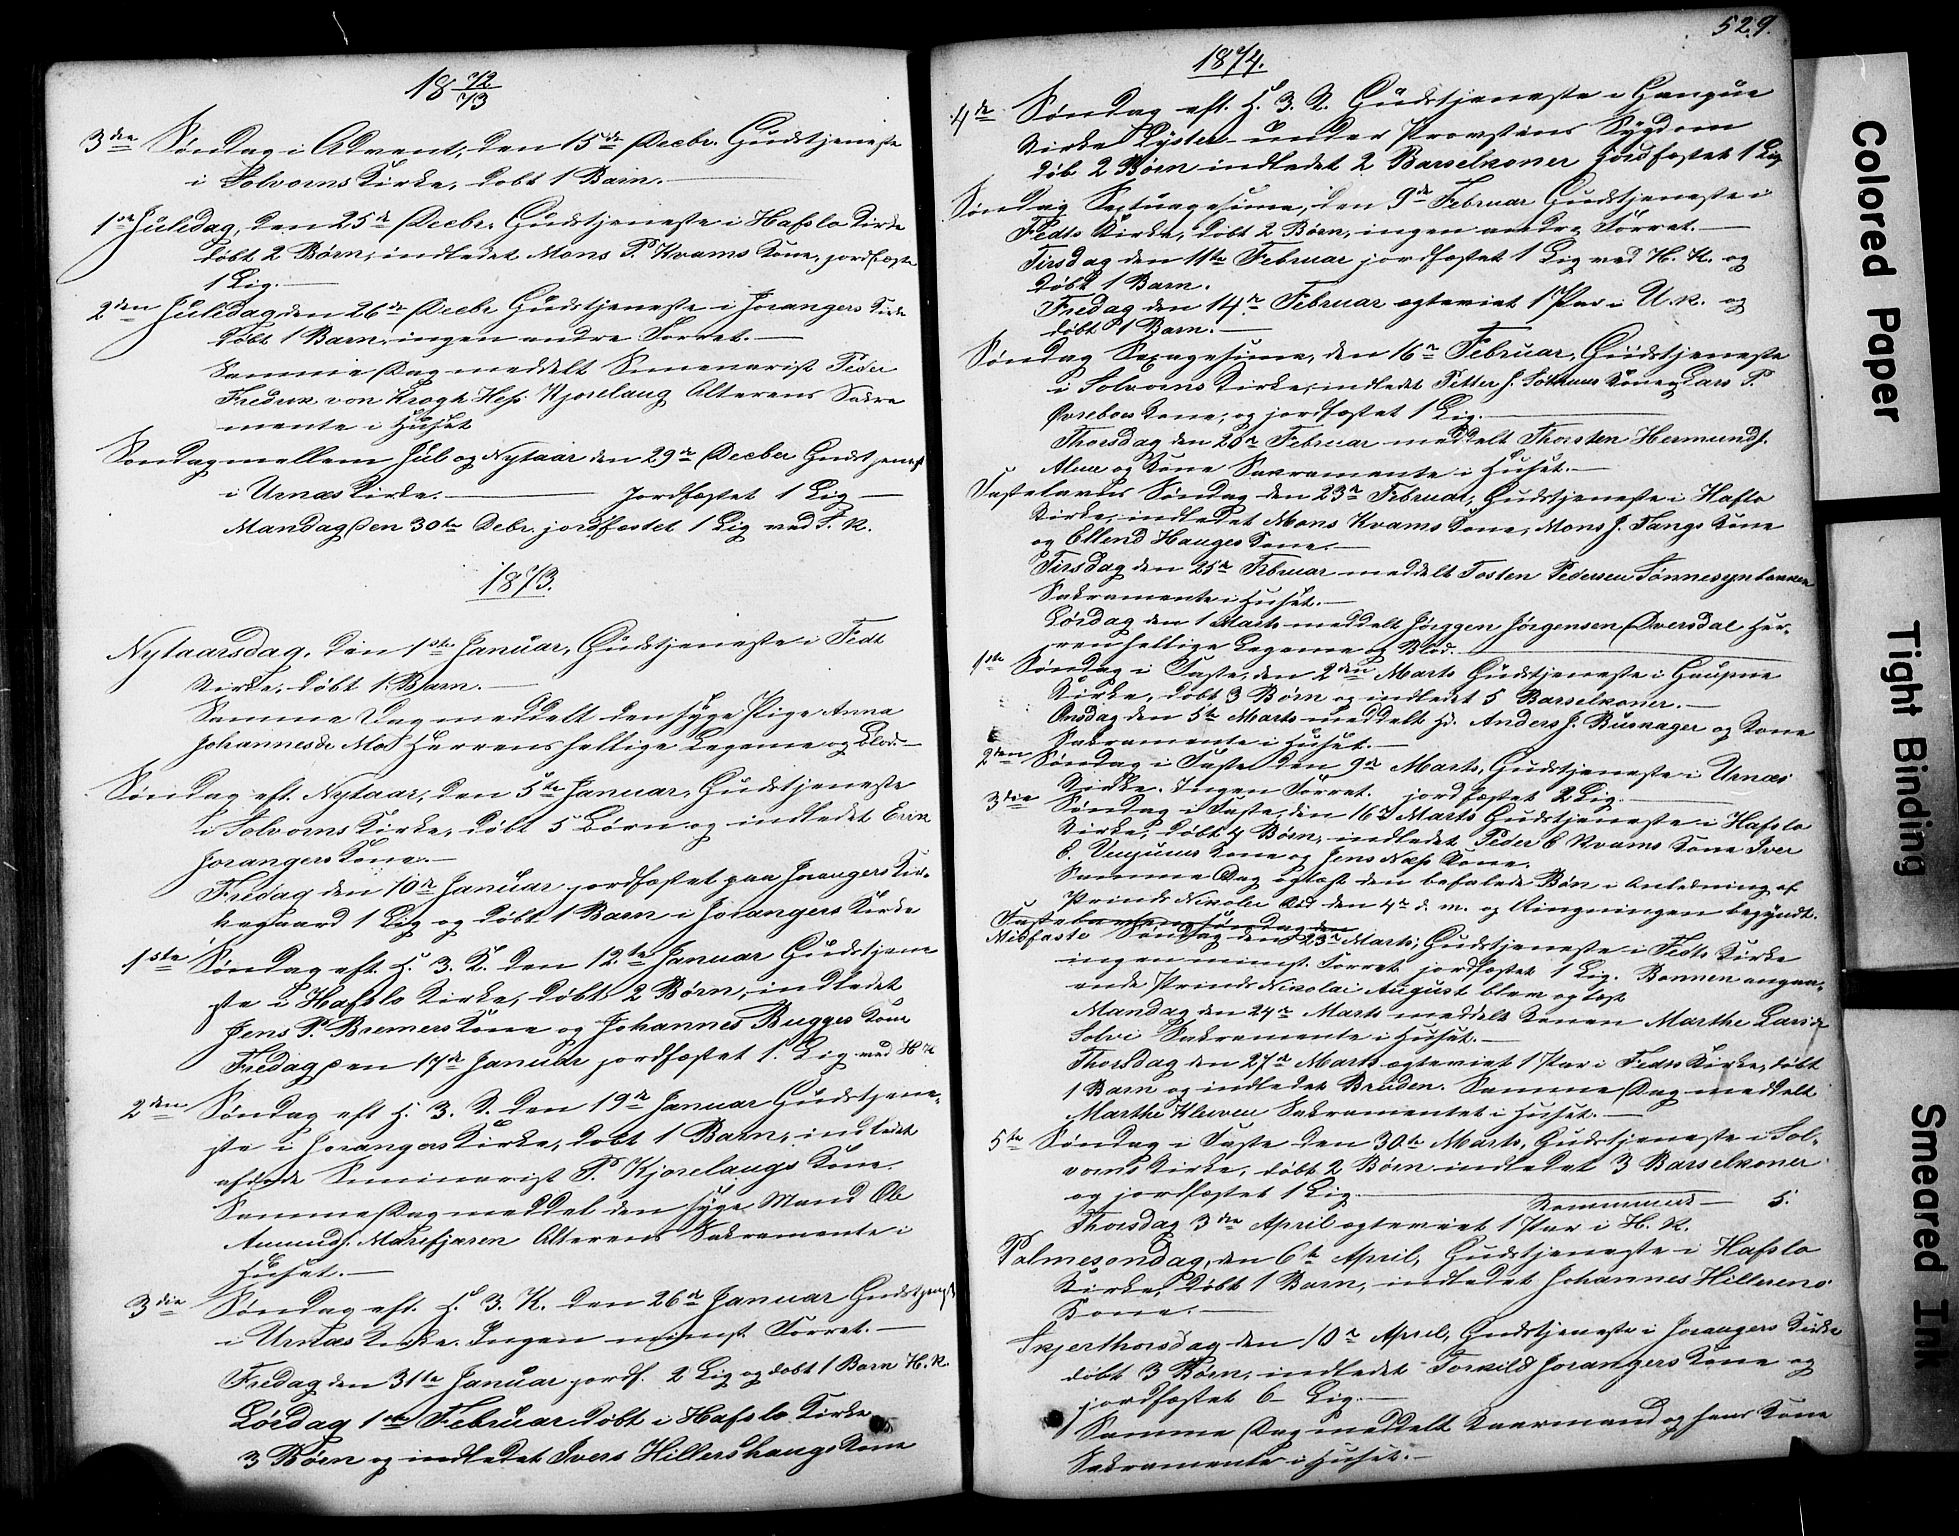 18 72/73
3die Søndag i Advent, den 15de Decbr. Gudstjeneste
i Solvorns Kirke, døbt 1 Barn.
1ste Juledag, den 25de Decbr. Gudstjeneste i Hafslo Kirke
døbt 2 Børn, indledet Mons P. Kvams Kone, jordfæste
1 Lig.
2den Juledag den 26de Decbr Gudstjeneste i Joranger Kirke
døbt 1 Barn, ingen andre Forret.
Samme Dag meddelt Semenarist Peder
Fredrik von Krogh Hess Kjørelaug Alterens Sakra
mente i Huset
Søndag mellem Jul og Nytaar den 29de Decber Gudstjeneste
i Urnæs Kirke. Jordfæstet 1 Lig
Mandag den 30te Debr. jordfæstet 1 Lig ved F. K.
1873.
Nytaarsdag, den 1ste Januar, Gudstjeneste i Fedt
Kirke, døbt 1 Barn.
Samme Dag meddelt den syge Pige Anna
Johannesdr Moe Herrens hellige Legeme og Blod.
Søndag eft. Nytaar, den 5te Januar, Gudstjeneste
i Solvorns Kirke, døbt 5 Børn og indledet Erik
Jorangers Kone.
Fredag den 10de Januar jordfæstet paa Jorangers Kir-
kegaard 1 Lig og døbt 1 Barn i Jorangers Kirke
1ste Søndag eft. H. 3. K. den 12te Januar Gudstjene
ste i Hafslo Kirke, døbt 2 Børn, indledet
Jens P. Bremers Kone og Johannes Bugges Kone
Fredag den 17de Januar jordfæstet 1. Lig ved H K
2den Søndag eft H. 3. K. den 19de Januar Gudstjene-
ste i Jorangers Kirke, døbt 1 Barn, indledet
afdøde Seminarist P. Kjørelaugs Kone.
Samme Dag meddelt den syge Mand Ole
Amunds. Marifjæren Alterens Sakramente i
Huset.
3die Søndag eft. H. 3. K. den 26de Januar Gudstjeneste
i Urnæs Kirke. Ingen minst. Forret.
Fredag den 31te Januar jordf. 2 Lig og døbt 1 Barn H. K.
Lørdag 1ste Februar døbt i Hafslo Kirke
3 Børn og indledet Ivers Hillershaugs Kone
529.
1874.
4de Søndag eft. H. 3. K. Gudstjeneste i Gaupne
Kirke Lyster under Provstens Sygdom
døb. 2 Børn indledet 2 Barselkoner jordfæstet 1 Lig
Søndag Septuagesima, den 9de Februar Gudstjeneste i
Fedts Kirke, døbt 2 Børn, ingen andre Forret.
Tirsdag den 11te Februar jordfæstet 1 Lig ved H. K. og
døbt 1 Barn.
Fredag den 14de Februar egteviet 1 Par i U. K. og
døbt 1 Barn.
Søndag Sexagesima, den 16de Februar, Gudstjeneste
i Solvorns Kirke, indledet Petter J. Kone og Lars P.
Øvrebøes Kone, og jordfæstet 1 Lig.
Thorsdag den 20de Februar meddelt Thorsten Hermunds.
Alme og Kone Sakramente i Huset.
Fastelavns Søndag den 23de Februar, Gudstjeneste i Hafslo
Kirke, indledet Mons Kvams Kone, Mons J. Tangs Kone
og Ellend Hauges Kone.
Tirsdag den 25de Februar meddelt Tosten Pedersen
Sakramente i Huset.
Lørdag den 1 Marts meddelt Jørggen Jørgensen Øversdal Her-
rens hellige Legeme og Blod.
1ste Søndag i Faste, den 2den Marts Gudstjeneste i Gaupne
Kirke, døbt 3 Børn og indledet 5 Barselkoner.
Onsdag den 5te Marts meddelt Anders J. Buskager og Kone
Sakramente i Huset.
2den Søndag i Faste den 9de Marts, Gudstjeneste i Urnæs
Kirke. Ingen Forret. jordfæstet 2 Lig.
3die Søndag i Faste, den 16de Marts Gudstjeneste i Hafslo
Kirke, døbt 4 Børn, indledet Peder E Kvams Kone Iver
E. Kone og Jens Næss Kone.
Samme Dag oplæst den befalede Bøn i Anledning af
Prinds Nicolai Død den 4de d. m. og Ringningen begyndt.
Midfaste Søndag den 23de Marts, Gudstjeneste i Fedts Kirke
ingen minst. Forret jordfæstet 1 Lig. Bønnen angaa-
ende Prinds Nicolai August blev oplæst
Mandag den 24de Marts meddelt Konen Marthe Larsdr
Solvi Sakramente i Huset.
Thorsdag den 27de Marts egteviet 1 Par i Fedts Kirke, døbt
1 Barn og indledet Bruden. Samme Dag meddelt
Marthe Kleiven Sakramentet i Huset.
5te Søndag i Faste den 30te Marts, Gudstjeneste i Sol-
vorns Kirke, døbt 2 Børn indledet 3 Barselkoner
og jordfæstet 1 Lig. Kommunic 5.
Thorsdag 3die April egteviet 1 Par i H. K.
Palmesøndag, den 6te April, Gudstjeneste i Hafslo
Kirke, døbt 1 Barn, indledet Johannes Hillerens
Kone.
Skjerthorsdag den 10de April, Gudstjeneste i Jorangers Kirke
døbt 3 Børn, indledet Torkild Jorangers Kone og
jordfæstet 6 Lig.
Samme Dag meddelt Kaarmand og hans Kone
Sakramente i Huset.
Colored Paper
Tight Binding
Smeared Ink